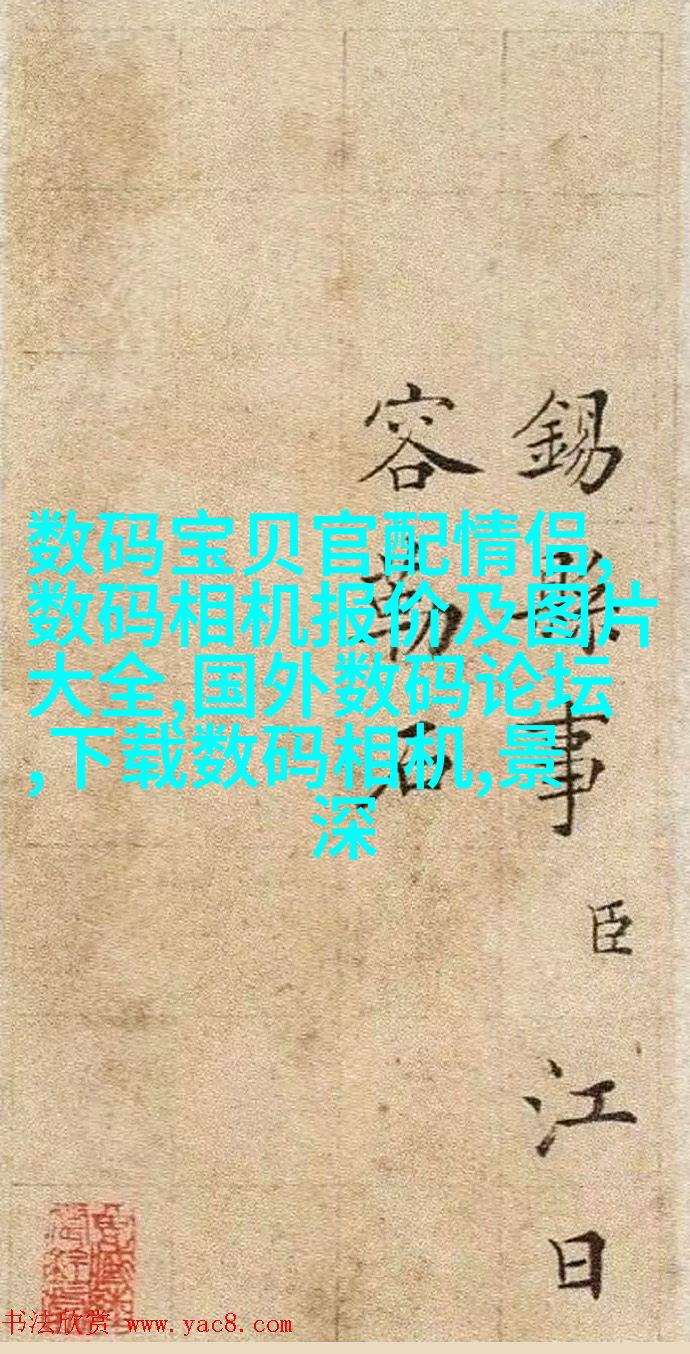 锡
事
臣
江
日
容
勒
石
数码宝贝官配情侣,
数码相机报价及图片
大全,国外数码论坛
,下载数码相机,景
深
书法欣赏 www.yac8.com